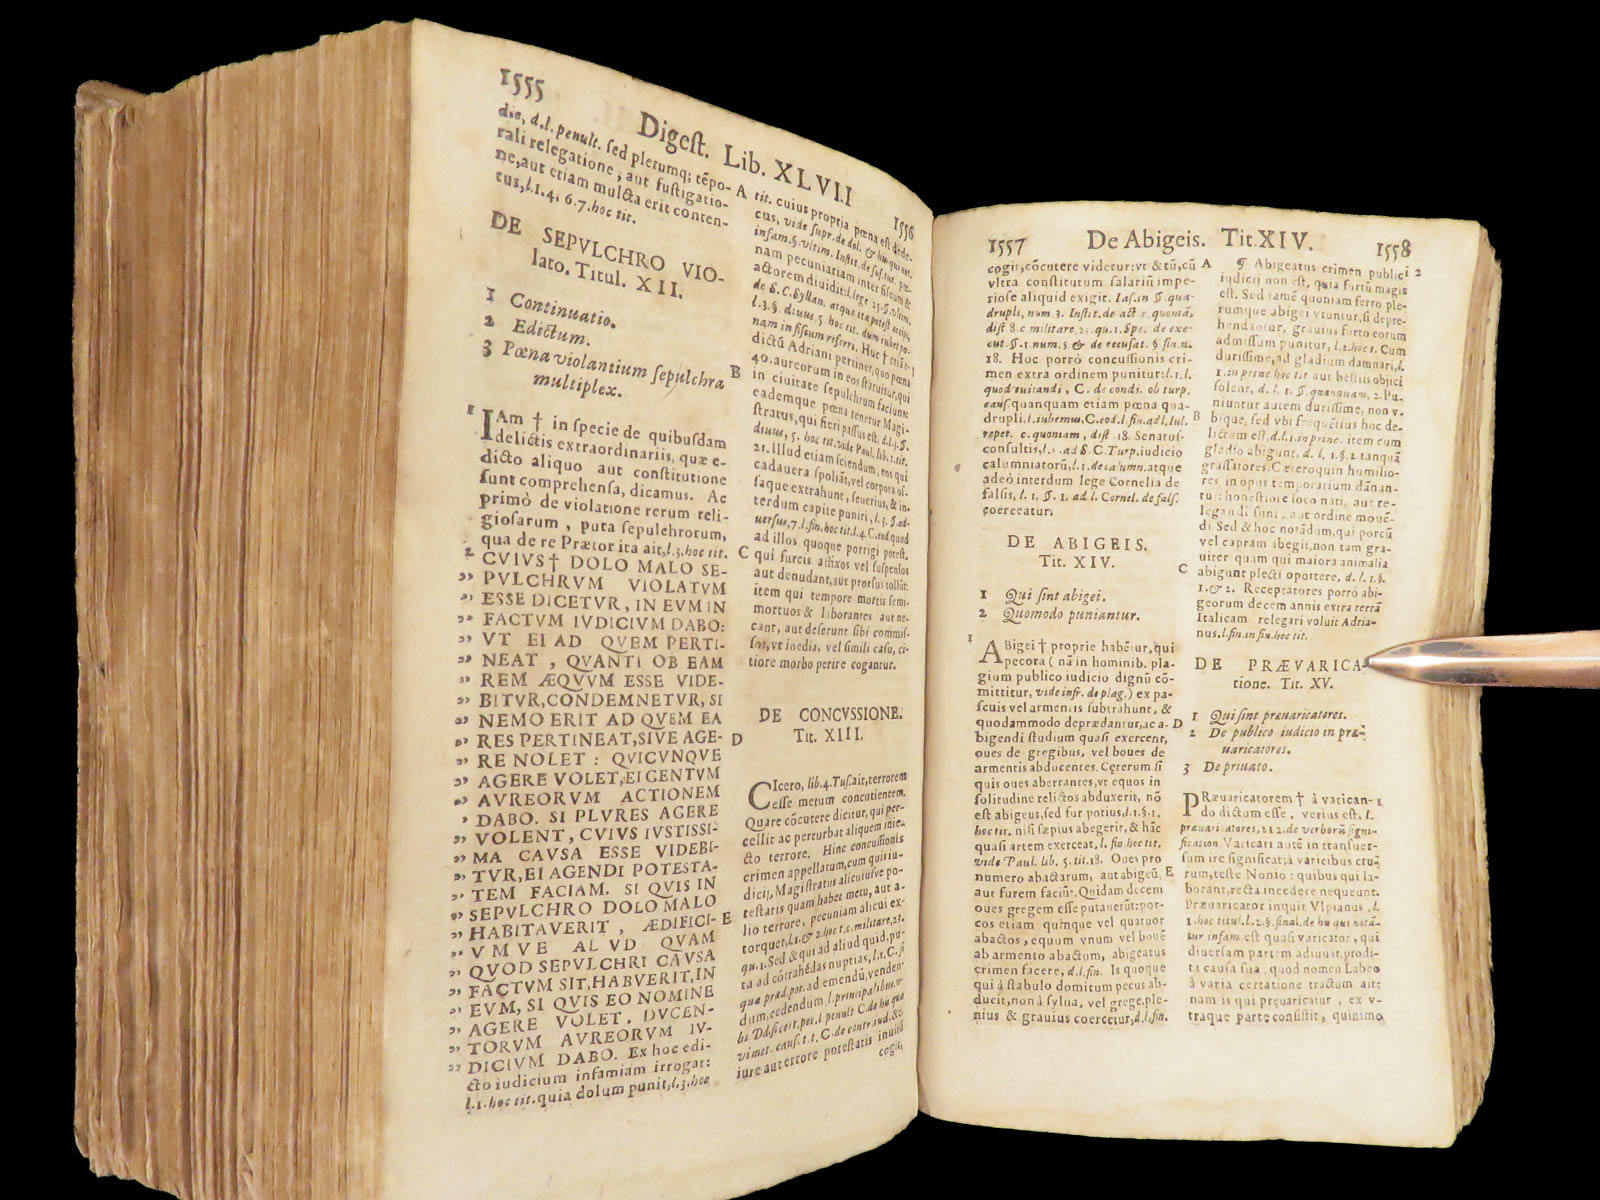 1555
Digest. Lib. XLVII
1556
die, d.l. penult. sed plerumq; tẽpo-
rali relegatione, aut fustigatio-
ne, aut etiam mulcta erit conten-
tus, l. 1. 4. 6. 7. hoc tit.
DE SEPVLCHRO VIO-
lato. Titul. XII.
1 Continuatio.
2 Edictum.
3 Pœna violantium sepulchra
multiplex.
1 IAm † in specie de quibusdam
delictis extraordinariis, quæ e-
dicto aliquo aut constitutione
sunt comprehensa, dicamus. Ac
primò de violatione rerum reli-
giosarum, puta sepulchrorum,
qua de re Prætor ita ait, l. 3. hoc tit.
2 CVIVS † DOLO MALO SE-
PVLCHRVM VIOLATVM
ESSE DICETVR, IN EVM IN
FACTVM IVDICIVM DABO:
VT EI AD QVEM PERTI-
NEAT, QVANTI OB EAM
REM ÆQVVM ESSE VIDE-
BITVR, CONDEMNETVR, SI
NEMO ERIT AD QVEM EA
RES PERTINEAT, SIVE AGE-
RE NOLET: QVICVNQVE
AGERE VOLET, EI CENTVM
AVREORVM ACTIONEM
DABO. SI PLVRES AGERE
VOLENT, CVIVS IVSTISSI-
MA CAVSA ESSE VIDEBI-
TVR, EI AGENDI POTESTA-
TEM FACIAM. SI QVIS IN
SEPVLCHRO DOLO MALO
HABITAVERIT, ÆDIFICI-
VMVE ALVD QVAM
QVOD SEPVLCHRI CAVSA
FACTVM SIT, HABVERIT, IN
EVM, SI QVIS EO NOMINE
AGERE VOLET, DVCEN-
TORVM AVREORVM IV-
DICIVM DABO. Ex hoc edi-
cto iudicium infamiam irrogat:
l. 1. hoc tit. quia dolum punit, l. 3. hoc
A
B
C
D
E
tit. cuius propria pœna est
cus, vide supr. de dol.
nam pecuniariam inter fiscum &
actorem diuidit:
de S. C. Syllan. atque ita potest accipi,
l. 3. §. diuus, 5. hoc tit. dum iubet pœ-
nam in fiscum referri. Huc †
dictũ Adriani pertinet, quo pœna
40. aureorum in eos statuitur, qui
in ciuitate sepulchrum faciunt:
eademque pœna tenetur Magi-
stratus, qui fieri passus est, d. l. 3. §.
diuus, 5. hoc tit. vide Paul. lib. 1. tit.
21. Illud etiam sciendum, eos qui
cadauera spoliãt, vel corpora os-
saque extrahunt, seuerius, & in-
terdum capite puniri, l. 3. §. ad-
uersus, 7. l. fin. hoc tit. l. 4. C. eod. quod
ad illos quoque porrigi potest,
qui furcis affixos vel suspensos
aut denudant, aut prorsus tollũt:
item qui tempore mortis semi-
mortuos & liborantes aut ne-
cant, aut deserunt sibi commis-
sos, vt inedia, vel simili casu, ci-
tiore morbo perire cogantur.
DE CONCVSSIONE.
Tit. XIII.
CIcero, lib. 4. Tus. ait, terrorem
esse metum concutientem.
Quare cõcutere dicitur, qui per-
cellit ac perturbat aliquem inie-
cto terrore. Hinc concussionis
crimen appellatum, cum quis iu-
dicij, Magistratus alicuiusve po-
testatis quam habet metu, aut a-
lio terrore, pecuniam alicui ex-
torquet, l. 1. & 2. hoc t. c. militare, 23.
qu. 1. Sed & qui ad aliud quid, pu-
ta ad cõtrahẽdas nuptias, l. 1. C. si
qua præd. pot. ad emendũ, venden-
dum, cedendum, l. principalibus.
iure aut errore potestatis inuitũ
cogit,
1557
De Abigeis. Tit. XIV.
1558
cogit, cõcutere videtur: vt & tũ, cũ
vltra constitutum salariũ impe-
riose aliquid exigit. Ias. in §. qua-
drupli, num 3. Instit. de act. c. quoniã,
dist 8. c militare, 23. qu. 1. Spe. de exe-
cut. §. 1. num. 5 & de recusat. § fin. n.
18. Hoc porrò concussionis cri-
men extra ordinem punitur: l. 1. l.
quod euitandi, C. de condi. ob turp.
caus. quanquam etiam pœna qua-
drupli, l. iubemus, C. eod. l. fin. ad l. Iul.
repet. c. quoniam, dist 18. Senatus-
consultis, l. 1. ad S. C. Turp. iudicio
calumniatorũ, l. 1. de calumn. atque
adeò interdum lege Cornelia de
falsis, l. 1. §. 1. ad l. Cornel. de fals.
coerceatur.
DE ABIGEIS.
Tit. XIV.
1 Qui sint abigei.
2 Quomodo puniantur.
1 ABigei † proprie habẽtur, qui
pecora ( nã in hominib. pla-
gium publico iudicio dignũ cõ-
mittitur, vide infr. de plag.) ex pa-
scuis vel armentis subtrahunt, &
quodammodo deprædantur, ac a-
bigendi studium quasi exercent,
oues de gregibus, vel boues de
armentis abducentes. Cęterum si
quis oues aberrantes, vt equos in
solitudine relictos abduxerit, nõ
est abigeus, sed fur potius, l. 1. §. 1.
hoc tit. nisi sæpius abegerit, & hãc
quasi artem exerceat, l. fin. hoc tit.
vide Paul. lib. 5. tit. 18. Oues pro
numero abactarum, aut abigeũ,
aut furem faciũt. Quidam decem
oues gregem esse putauerũt: por-
cos etiam quinque vel quatuor
abactos, equum vnum vel bouẽ
ab armento abactum, abigeatus
crimen facere, d. l. fin. Is quoque
qui à stabulo domitum pecus ab-
ducit, non à sylua, vel grege, ple-
nius & grauius coercetur, d. l. fin.
A
B
C
D
E
¶ Abigeatus crimen publici 2
iudicij non est, quia furtũ magis
est. Sed tamẽ quoniam ferro ple-
rumque abigei vtuntur, si depre-
hendantur, grauius furto eorum
admissum punitur, l. 2. hoc t. Cum
durissime, ad gladium damnari, l.
1. in princ hoc tit. aut bestiis obijci
solent, d. l. 1. §. quanquam, 2. Pu-
niuntur autem durissime, non v-
bique, sed vbi frequẽtius hoc de-
lictum est, d. l. 1. in princ. item cum
gladio abigunt, d. l. 1. §. 2. tanquã
grassatores. Cæteroquin humilio-
res in opus temporarium dãnan-
tur: honestiore loco nati, aut re-
legandi sunt, aut ordine mouẽ-
di Sed & hoc notãdum, qui porcũ
vel capram abegit, non tam gra-
uiter quam qui maiora animalia
abigunt plecti oportere, d. l. 1. §.
1. & 2. Receptatores porrò abi-
georum decem annis extra terrã
Italicam relegari voluit Adria-
nus, l. fin. in fin. hoc tit.
DE PRÆVARICA-
tione. Tit. XV.
1 Qui sint præuaricatores.
2 De publico iudicio in præ-
uaricatores.
3 De priuato.
PRæuaricatorem † à varican- 1
do dictum esse, verius est, l.
præuaricatores, 212. de verborũ signi-
fication Varicari autẽ in transuer-
sum ire significat; à varicibus cru-
rum, teste Nonio: quibus qui la-
borant, recta incedere nequeunt.
Præuaricator inquit Vlpianus, l.
1. hoc titul. l. 2. §. final. de his qui notã-
tur infam. est quasi varicator, qui
diuersam partem adiuuit, prodi-
ta causa sua, quod nomen Labeo
à varia certatione tractum ait:
nam is qui pręuaricatur, ex v-
traque parte consistit, quinimo